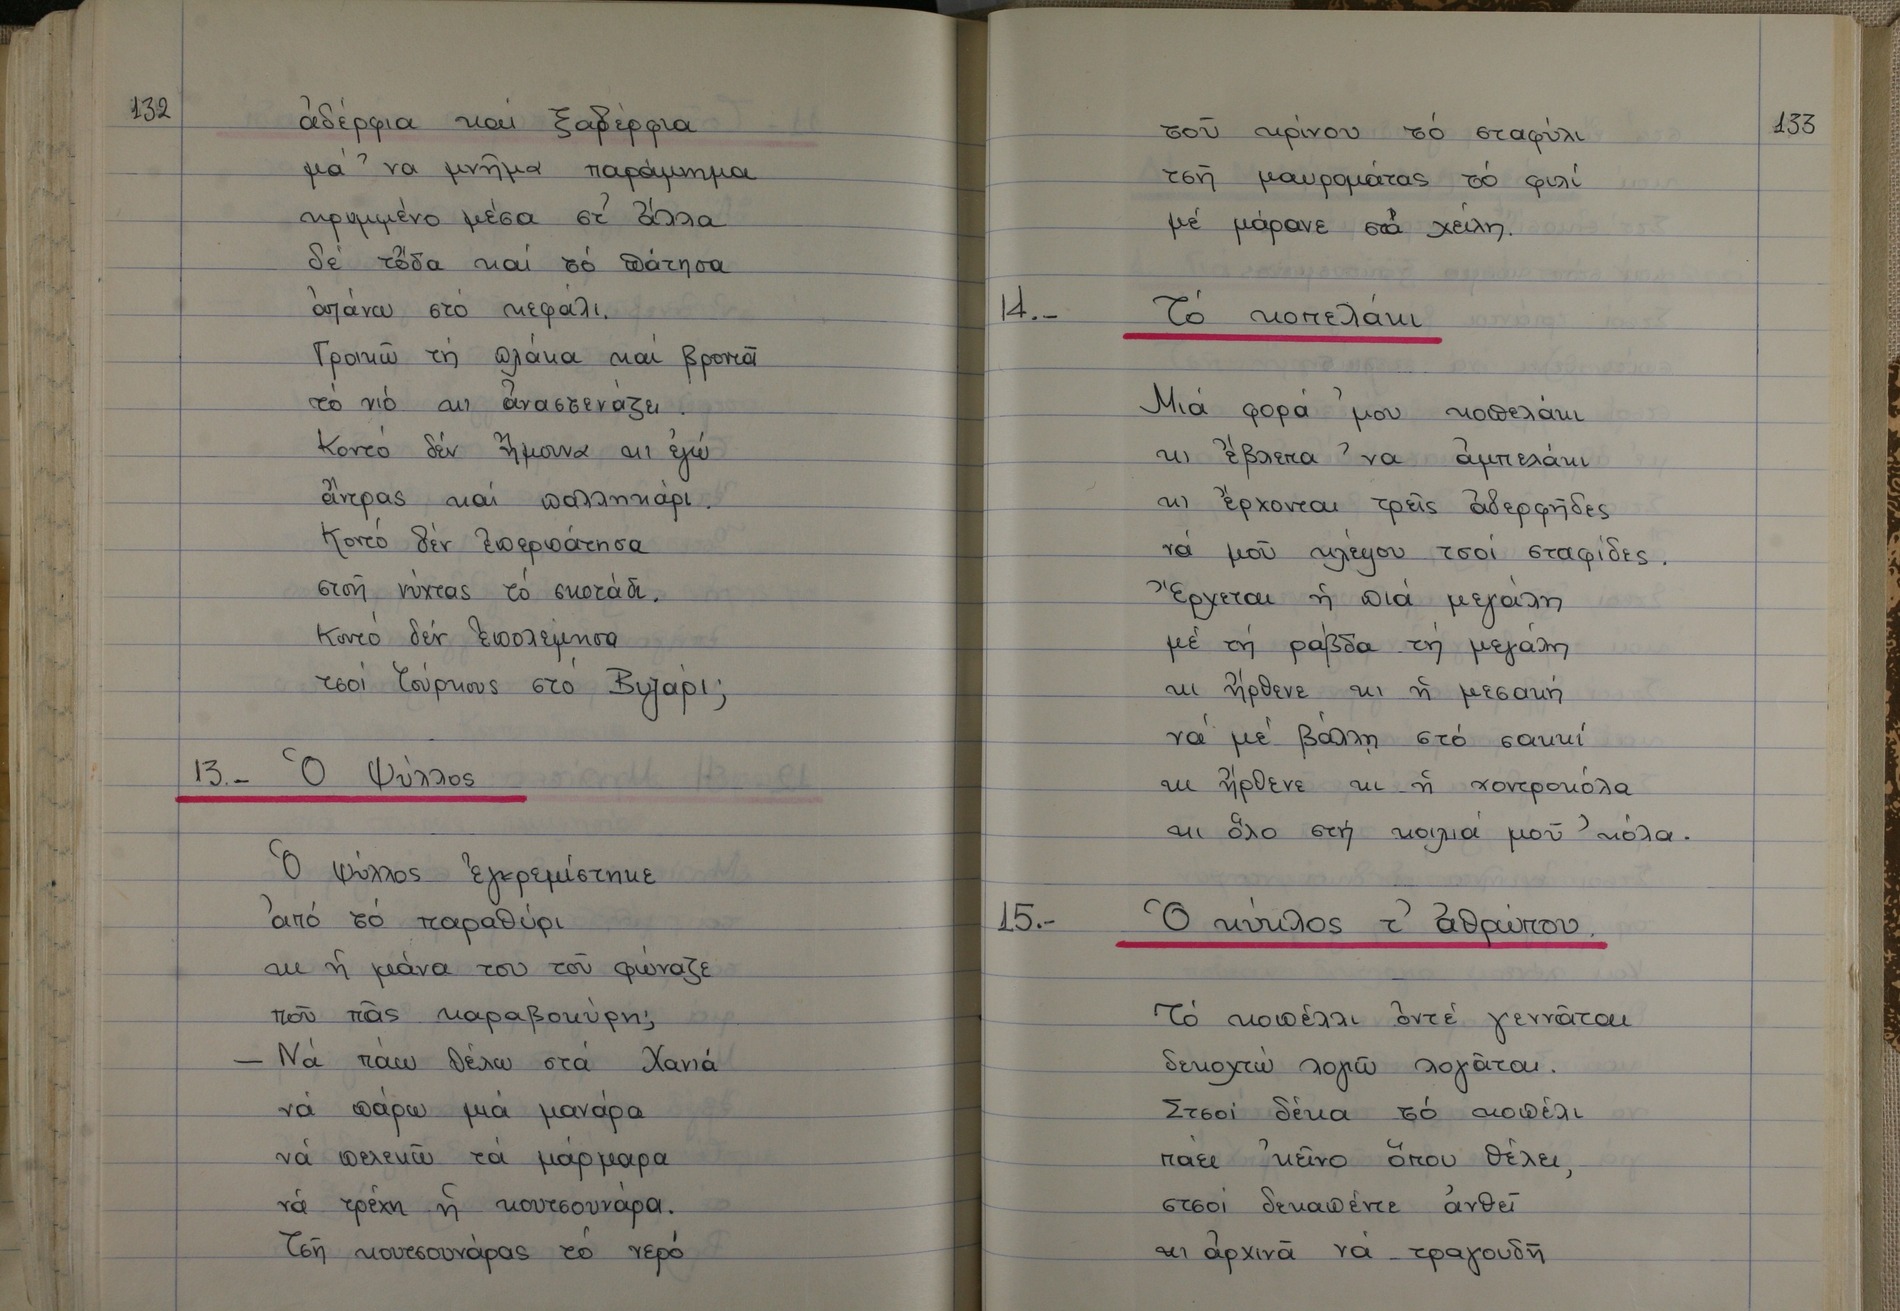 132
ἀδέρφια καί ξαδέρφια
μά 'να μνῆμα παράμνημα
κρυμμένο μέσα στ' ἄλλα
δέ τὄδα καί τό πάτησα
ἀπάνω στό κεφάλι.
Γροικῶ τή πλάκα καί βροντᾶ
τό νιό κι ἀναστενάζει.
Κοντό δέν ἤμουνα κι ἐγώ
ἄντρας καί παλληκάρι.
Κοντό δέν ἐπερπάτησα
στσῆ νύχτας τό σκοτάδι.
Κοντό δέν ἐπολέμησα
τσοί Τούρκους στό Βιγλάρι;
13.- Ὁ Ψύλλος
Ὁ ψύλλος ἐγκρεμίστηκε
ἀπό τό παραθύρι
κι ἡ μάνα του τοῦ φώναζε
ποῦ πᾶς καραβοκύρη;
— Νά πάω θέλω στά Χανιά
νά πάρω μιά μανάρα
νά πελεκῶ τά μάρμαρα
νά τρέχη ἡ κουτσουνάρα.
Τσῆ κουτσουνάρας τό νερό
133
τοῦ κρίνου τό σταφύλι
τσῆ μαυρομάτας τό φιλί
μέ μάρανε στά χείλη.
14.- Τό κοπελάκι
Μιά φορά 'μου κοπελάκι
κι ἔβλεπα 'να ἀμπελάκι
κι ἔρχονται τρεῖς ἀδερφῆδες
νά μοῦ κλέψου τσοί σταφίδες.
Ἔρχεται ἡ πιά μεγάλη
μέ τή ράβδα τή μεγάλη
κι ἤρθενε κι ἡ μεσακή
νά μέ βάλλῃ στό σακκί
κι ἤρθενε κι ἡ χοντροκόλα
κι ὅλο στή κοιλιά μοῦ 'κόλα.
15.- Ὁ κύκλος τ' ἀθρώπου.
Τό κοπέλλι ὀντέ γεννᾶται
δεκοχτώ λογῶ λογᾶται.
Στσοί δέκα τό κοπέλι
πάει 'κεῖνο ὅπου θέλει,
στσοί δεκαπέντε ἀνθεῖ
κι ἀρχινᾶ νά τραγουδῆ